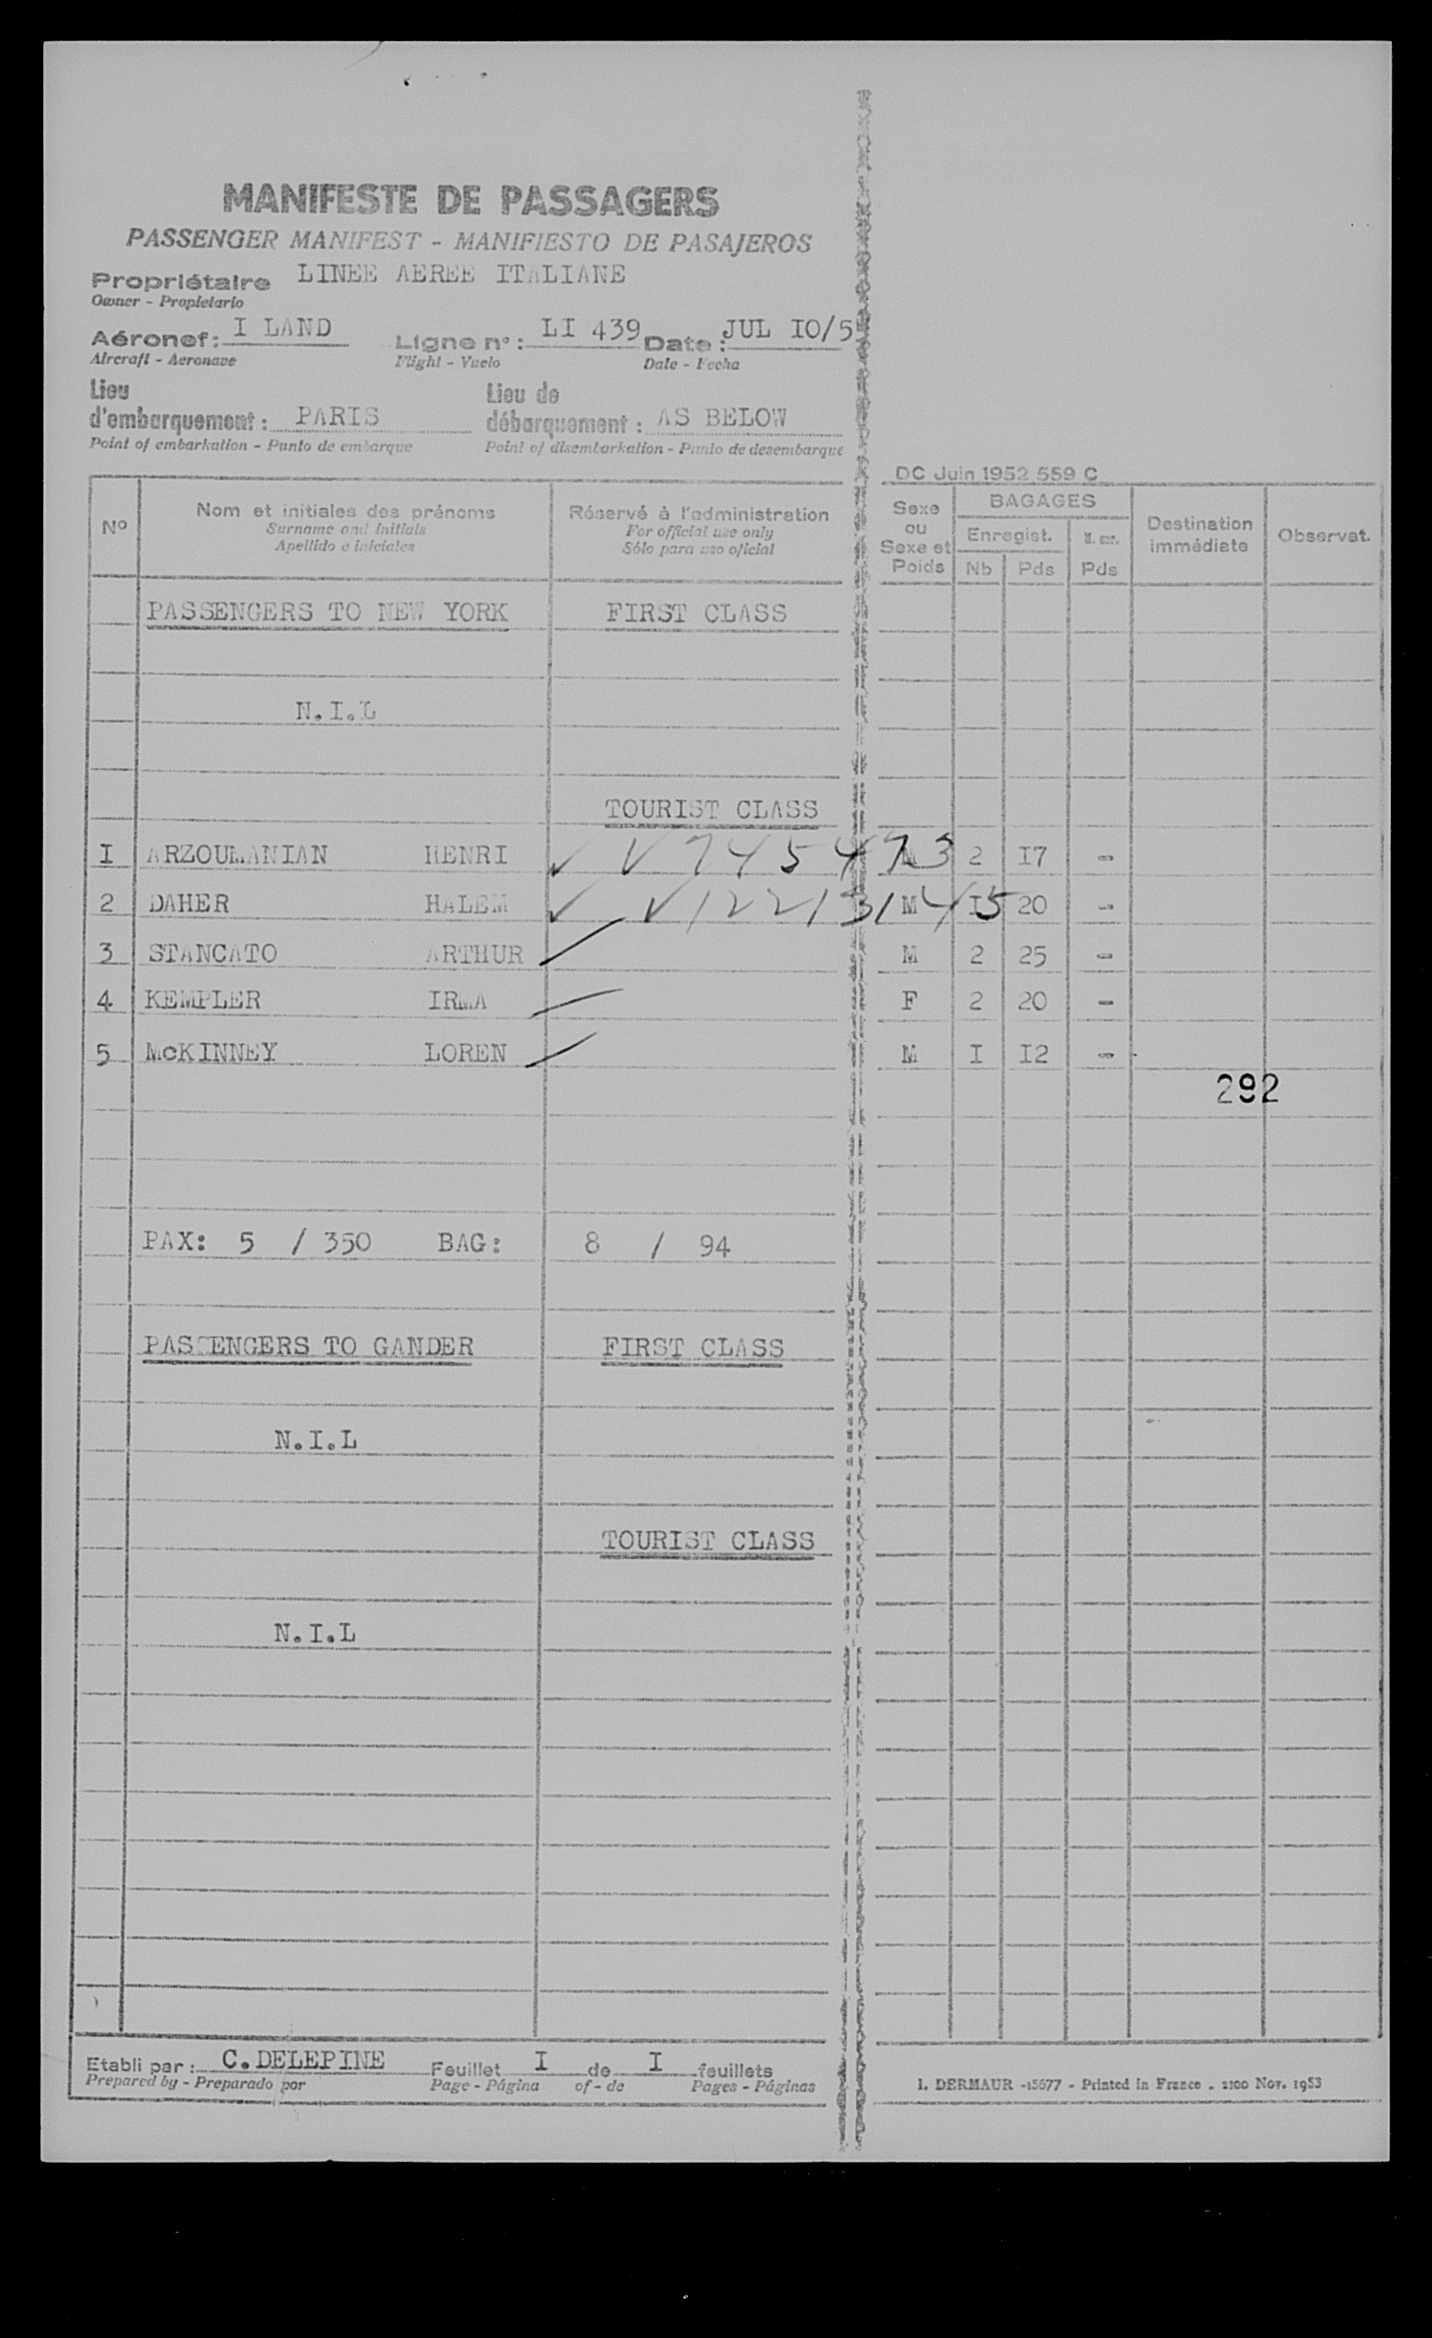 MANIFESTE DE PASSAGERS
PASSENGER MANIFEST - MANIFIESTO DE PASAJEROS
Propriétaire LINEE AEREE ITALIANE
Owner - Propietario
Aéronef: I LAND Ligne n°: LI 439 Date: JUL IO/5
Aircraft - Aeronave Flight - Vuelo Date - Fecha
Lieu Lieu de
d'embarquement: PARIS débarquement: AS BELOW
Point of embarkation - Punto de embarque Point of disembarkation - Punto de desembarque
DC Juin 1952 559 C
N° Nom et initiales des prénoms Réservé à l'administration Sexe BAGAGES
Surname and initials For official use only ou Enregist. Destination Observat.
Apellido e iniciales Sólo para uso oficial Sexe et immédiate
Poids Nb Pds Pds
PASSENGERS TO NEW YORK FIRST CLASS
N.I.L
TOURIST CLASS
I ARZOUMANIAN HENRI ✓ V 7454 2 I7 -
2 DAHER HALEM ✓ V 12213145 M I 20 -
3 STANCATO ARTHUR M 2 25 -
4 KEMPLER IRMA F 2 20 -
5 McKINNEY LOREN M I I2 -
292
PAX: 5 / 350 BAG: 8 / 94
PASSENGERS TO GANDER FIRST CLASS
N.I.L
TOURIST CLASS
N.I.L
Etabli par: C.DELEPINE Feuillet I de I feuillets
Prepared by - Preparado por Page - Página of - de Pages - Páginas
I. DERMAUR -15677 - Printed in France - 2100 Nov. 1953